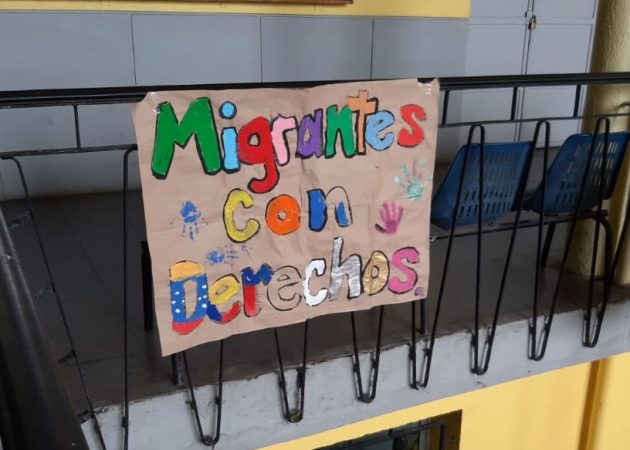 Migrantes
Con
Derechos